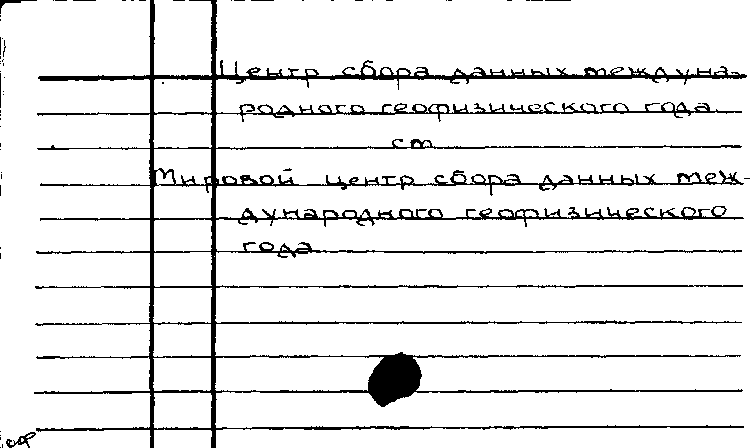 Центр сбора данных междуна-
родного геофизического года
см
Мировой центр сбора данных меж-
дународного геофизического
года